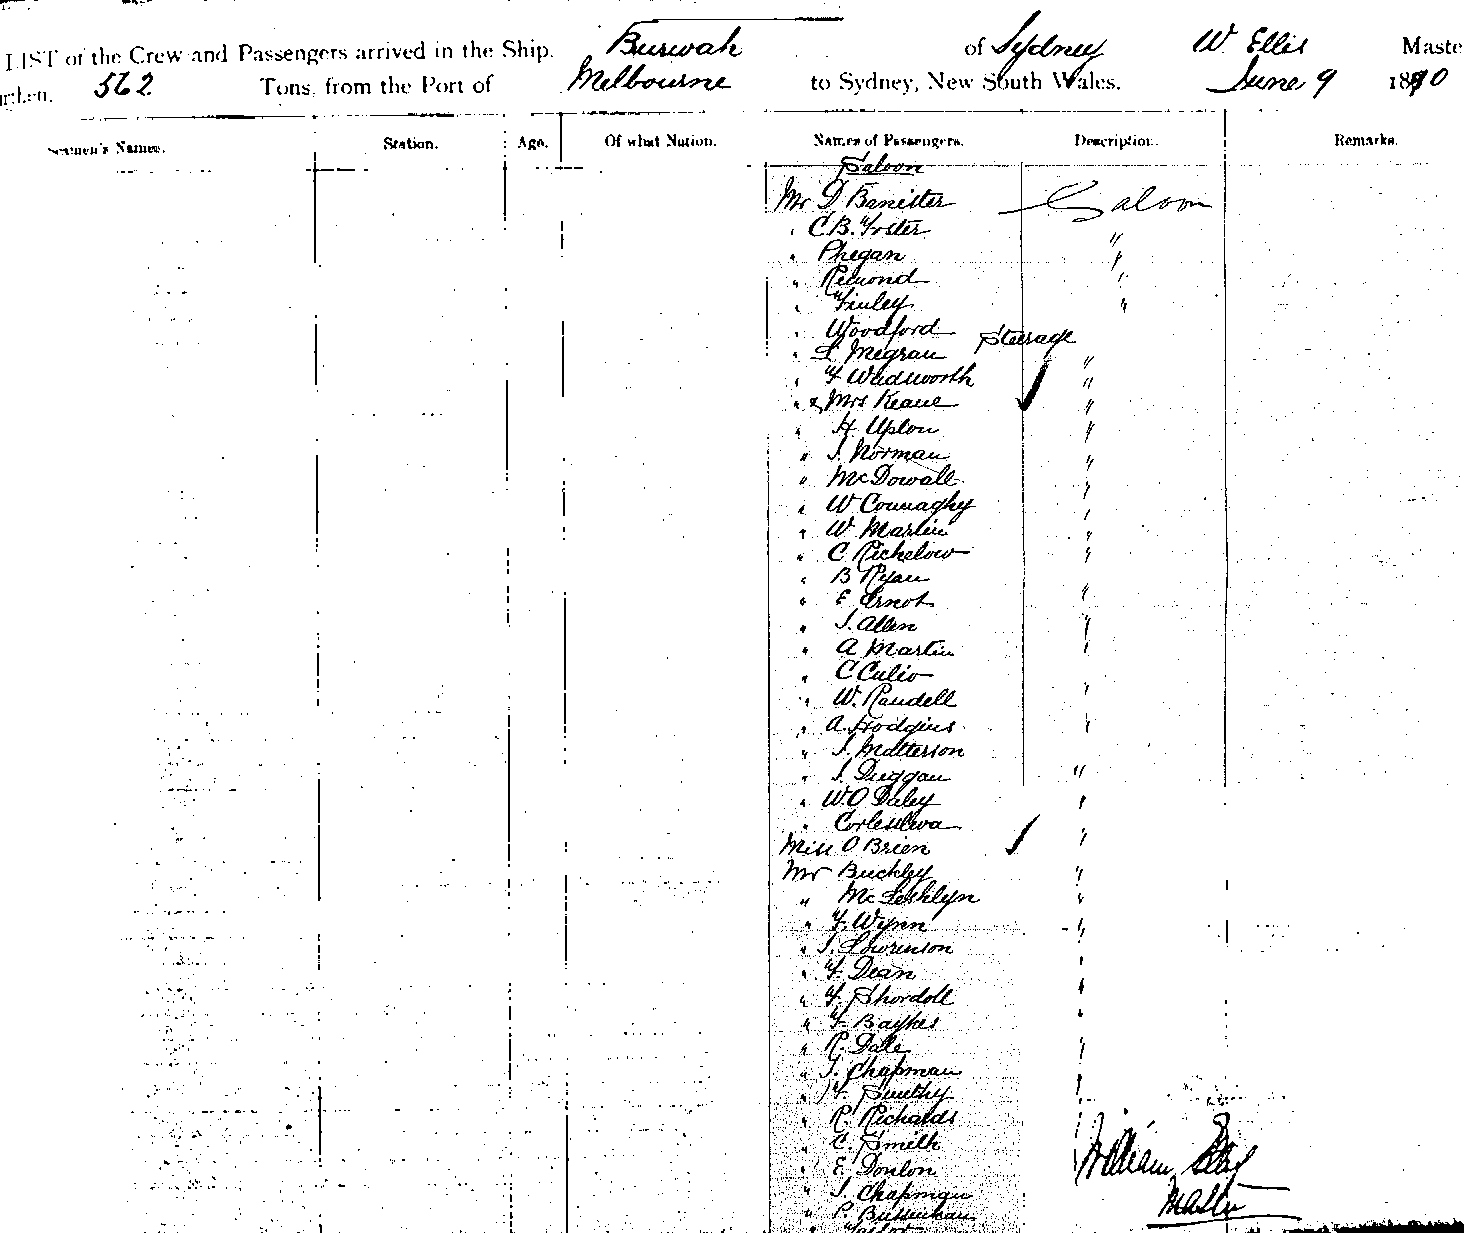 LIST of the Crew and Passengers arrived in the Ship. Burwah of Sydney W Ellis Maste
562 Tons, from the Port of Melbourne to Sydney, New South Wales. June 9 1890
Seamen's Names. Station. Age. Of what Nation. Names of Passengers. Description. Remarks.
Saloon
Mr D Banister Saloon
" C B. Foster "
" Phegan "
" Redmond "
" Finley "
" Woodford Steerage
" L Megrau "
" F Wadsworth "
" & Mrs Keane "
" H Upton "
" J. Norman "
" McDowall "
" W Connaghy "
" W Martin "
" C Richelow "
" B Ryan
" E Ernot "
" J. Allen "
" A Martin "
" C Culio
" W. Randell "
" A. Hodgins "
" J. Matterson
" J. Duggan "
" W O Daley "
"
Miss O Brien "
Mr Buckley "
" "
" F. Wynn "
" J. Lowrenson "
" F. Dean "
" F. Shordoll "
" F. Baykes "
" R. Dale "
" J. Chapman "
" F. Smithy
" R. Richards
" C. Smith
" E. Donlon
" J. Chapman
" P.
William Ellis
Master